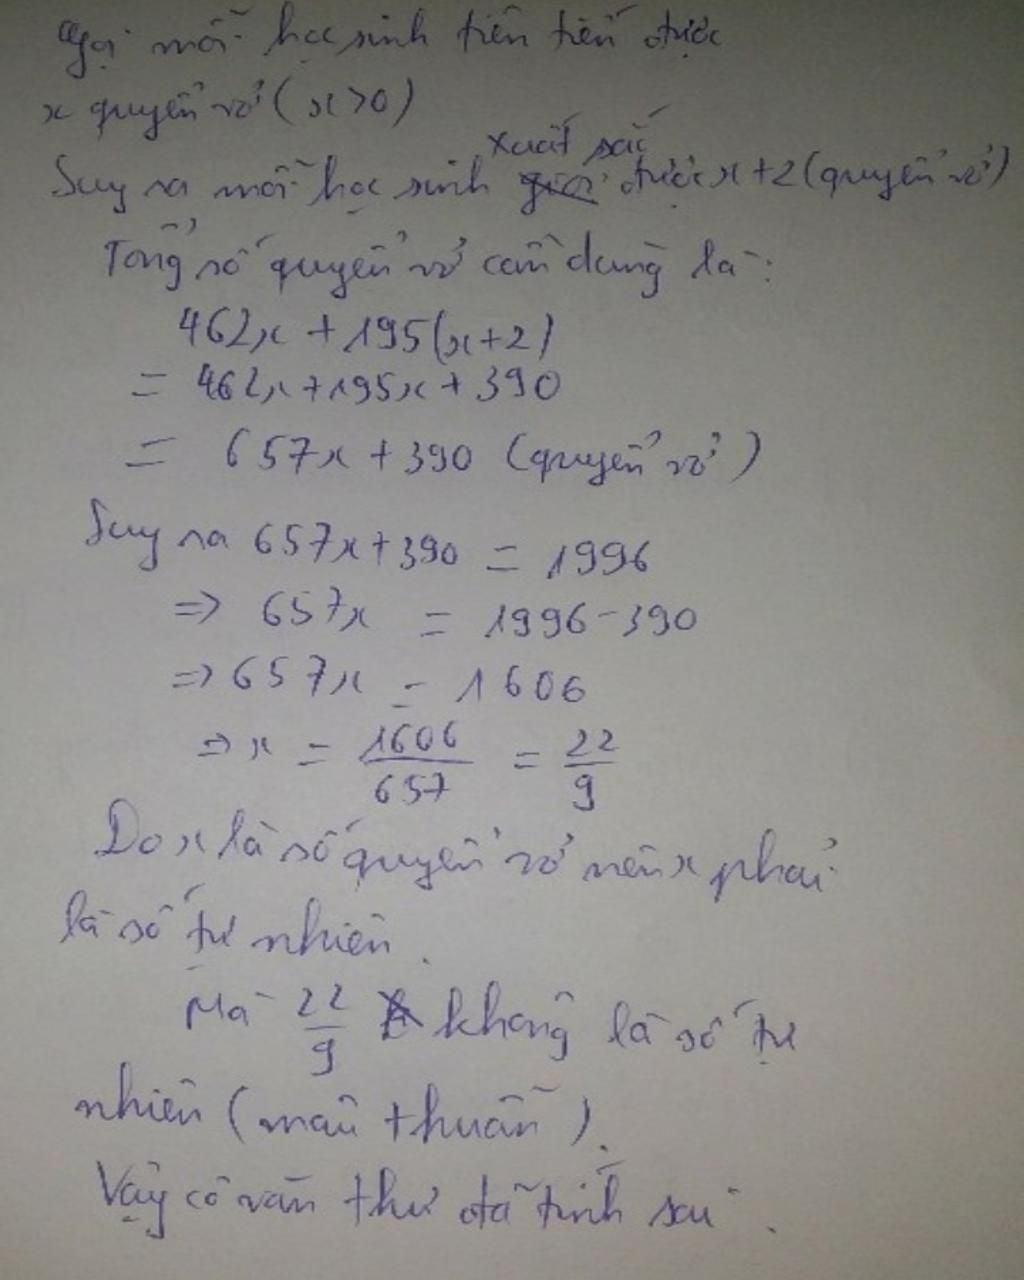 Gọi mỗi học sinh tiên tiến được
x quyển vở (x>0)
xuất sắc
Suy ra mỗi học sinh giỏi được x+2 (quyển vở)
Tổng số quyển vở cần dùng là:
462x + 195(x+2)
= 462x+195x+390
= 657x+390 (quyển vở)
Suy ra 657x+390 = 1996
=> 657x = 1996-390
=> 657x = 1606
=> x = 1606/657 = 22/9
Do x là số quyển vở nên x phải
là số tự nhiên.
Mà 22/9 không là số tự
nhiên (mâu thuẫn).
Vậy cô văn thư đã tính sai.